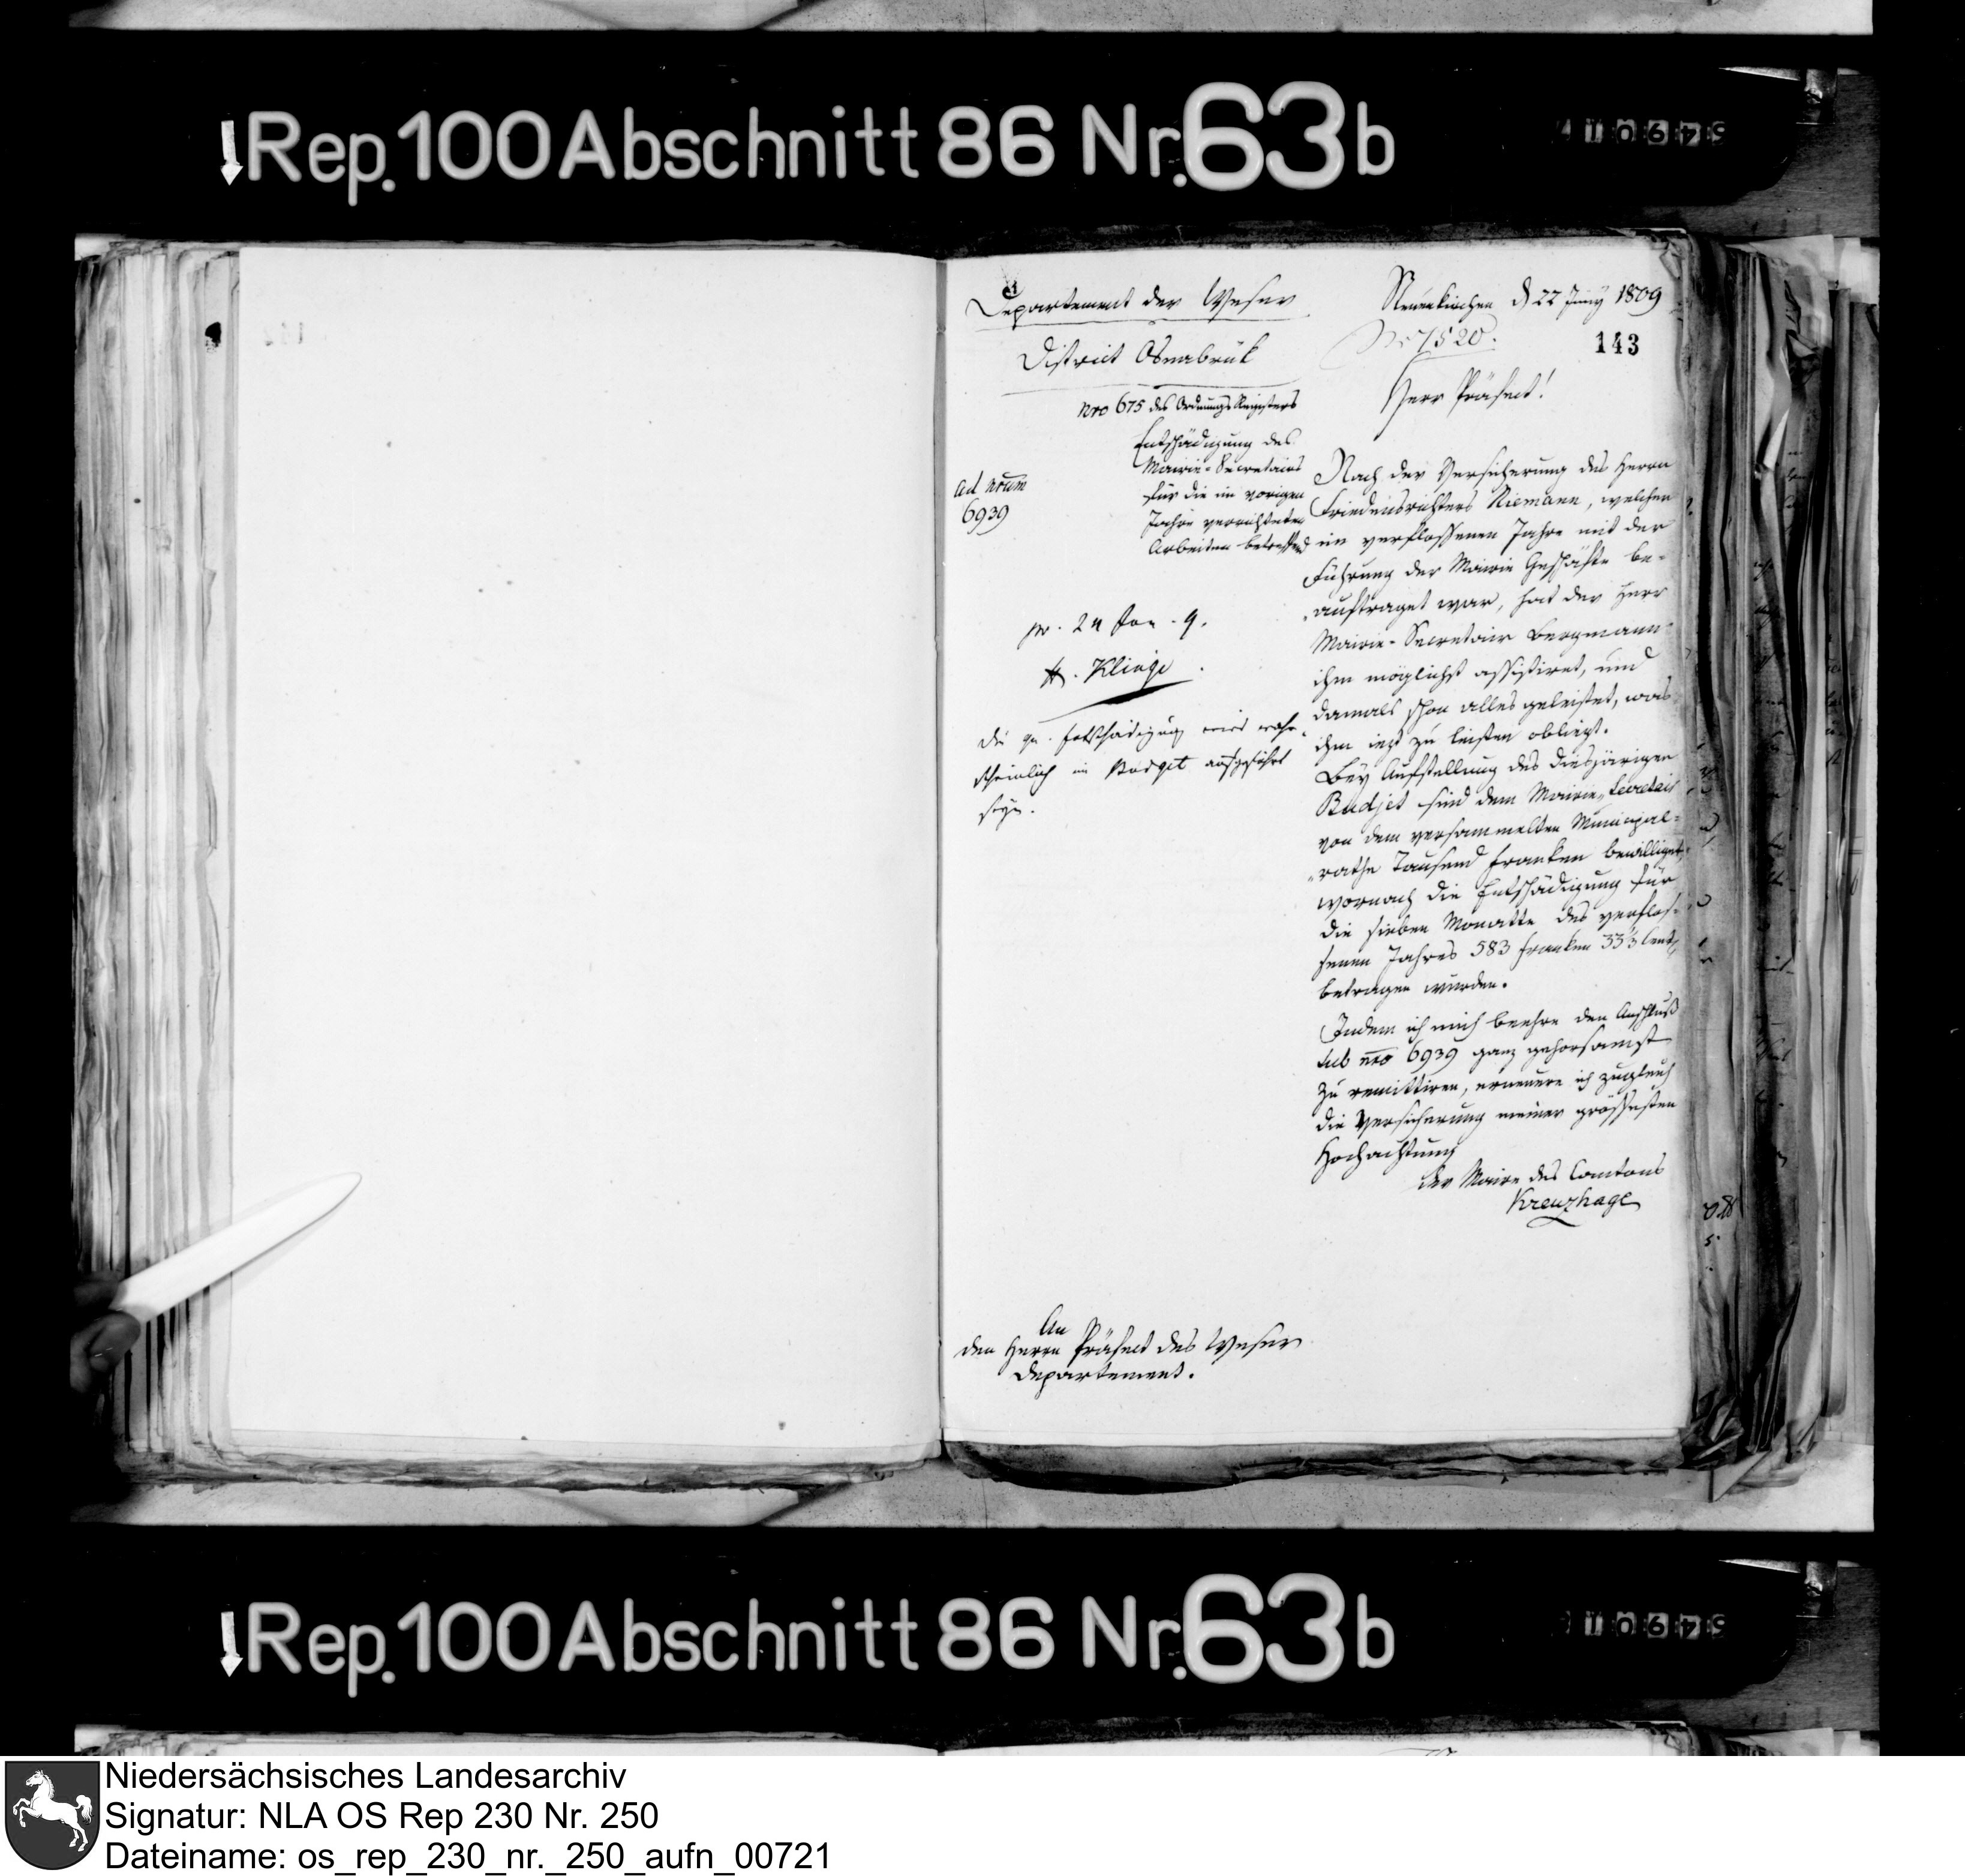 Rep. 100 Abschnitt 86 Nr. 63b
Departement der Weser
District Osnabrük
nro 675 des Ordnungs Registers
Entschädigung des
Mairie-Secretairs
für die im vorigen
Jahre verrichteten
Arbeiten betreffend
ad num
6939
pr. 24 Jun. 9.
H. Klinge
die qu. Entschädigung wird wahr-
scheinlich im Budget aufgeführt
seyn.
An
den Herrn Präfect des Weser
Departement.
Neuenkirchen d 22 Juny 1809
Nr 7520.
143
Herr Präfect!
Nach der Versicherung des Herrn
Friedensrichters Niemann, welcher
im verflossenen Jahre mit der
Führung der Mairie Geschäfte be-
auftraget war, hat der Herr
Mairie-Secretair Bergmann
ihm möglichst assistiret, und
damals schon alles geleistet, was
ihm iezt zu leisten obliegt.
Bey Aufstellung des diesjärigen
Budjet sind dem Mairie-Secretair
von dem versammelten Municipal-
rathe Tausend Franken bewilliget,
wornach die Entschädigung für
die sieben Monatte des verflos-
senen Jahres 583 Franken 33⅓ Cent
betragen würden.
Indem ich mich beehre den Anschluß
sub nro 6939 ganz gehorsamst
zu remittiren, erneuere ich zugleich
die Versicherung meiner grössesten
Hochachtung
der Maire des Cantons
Kreuzhage
Rep. 100 Abschnitt 86 Nr. 63b
Niedersächsisches Landesarchiv
Signatur: NLA OS Rep 230 Nr. 250
Dateiname: os_rep_230_nr._250_aufn_00721